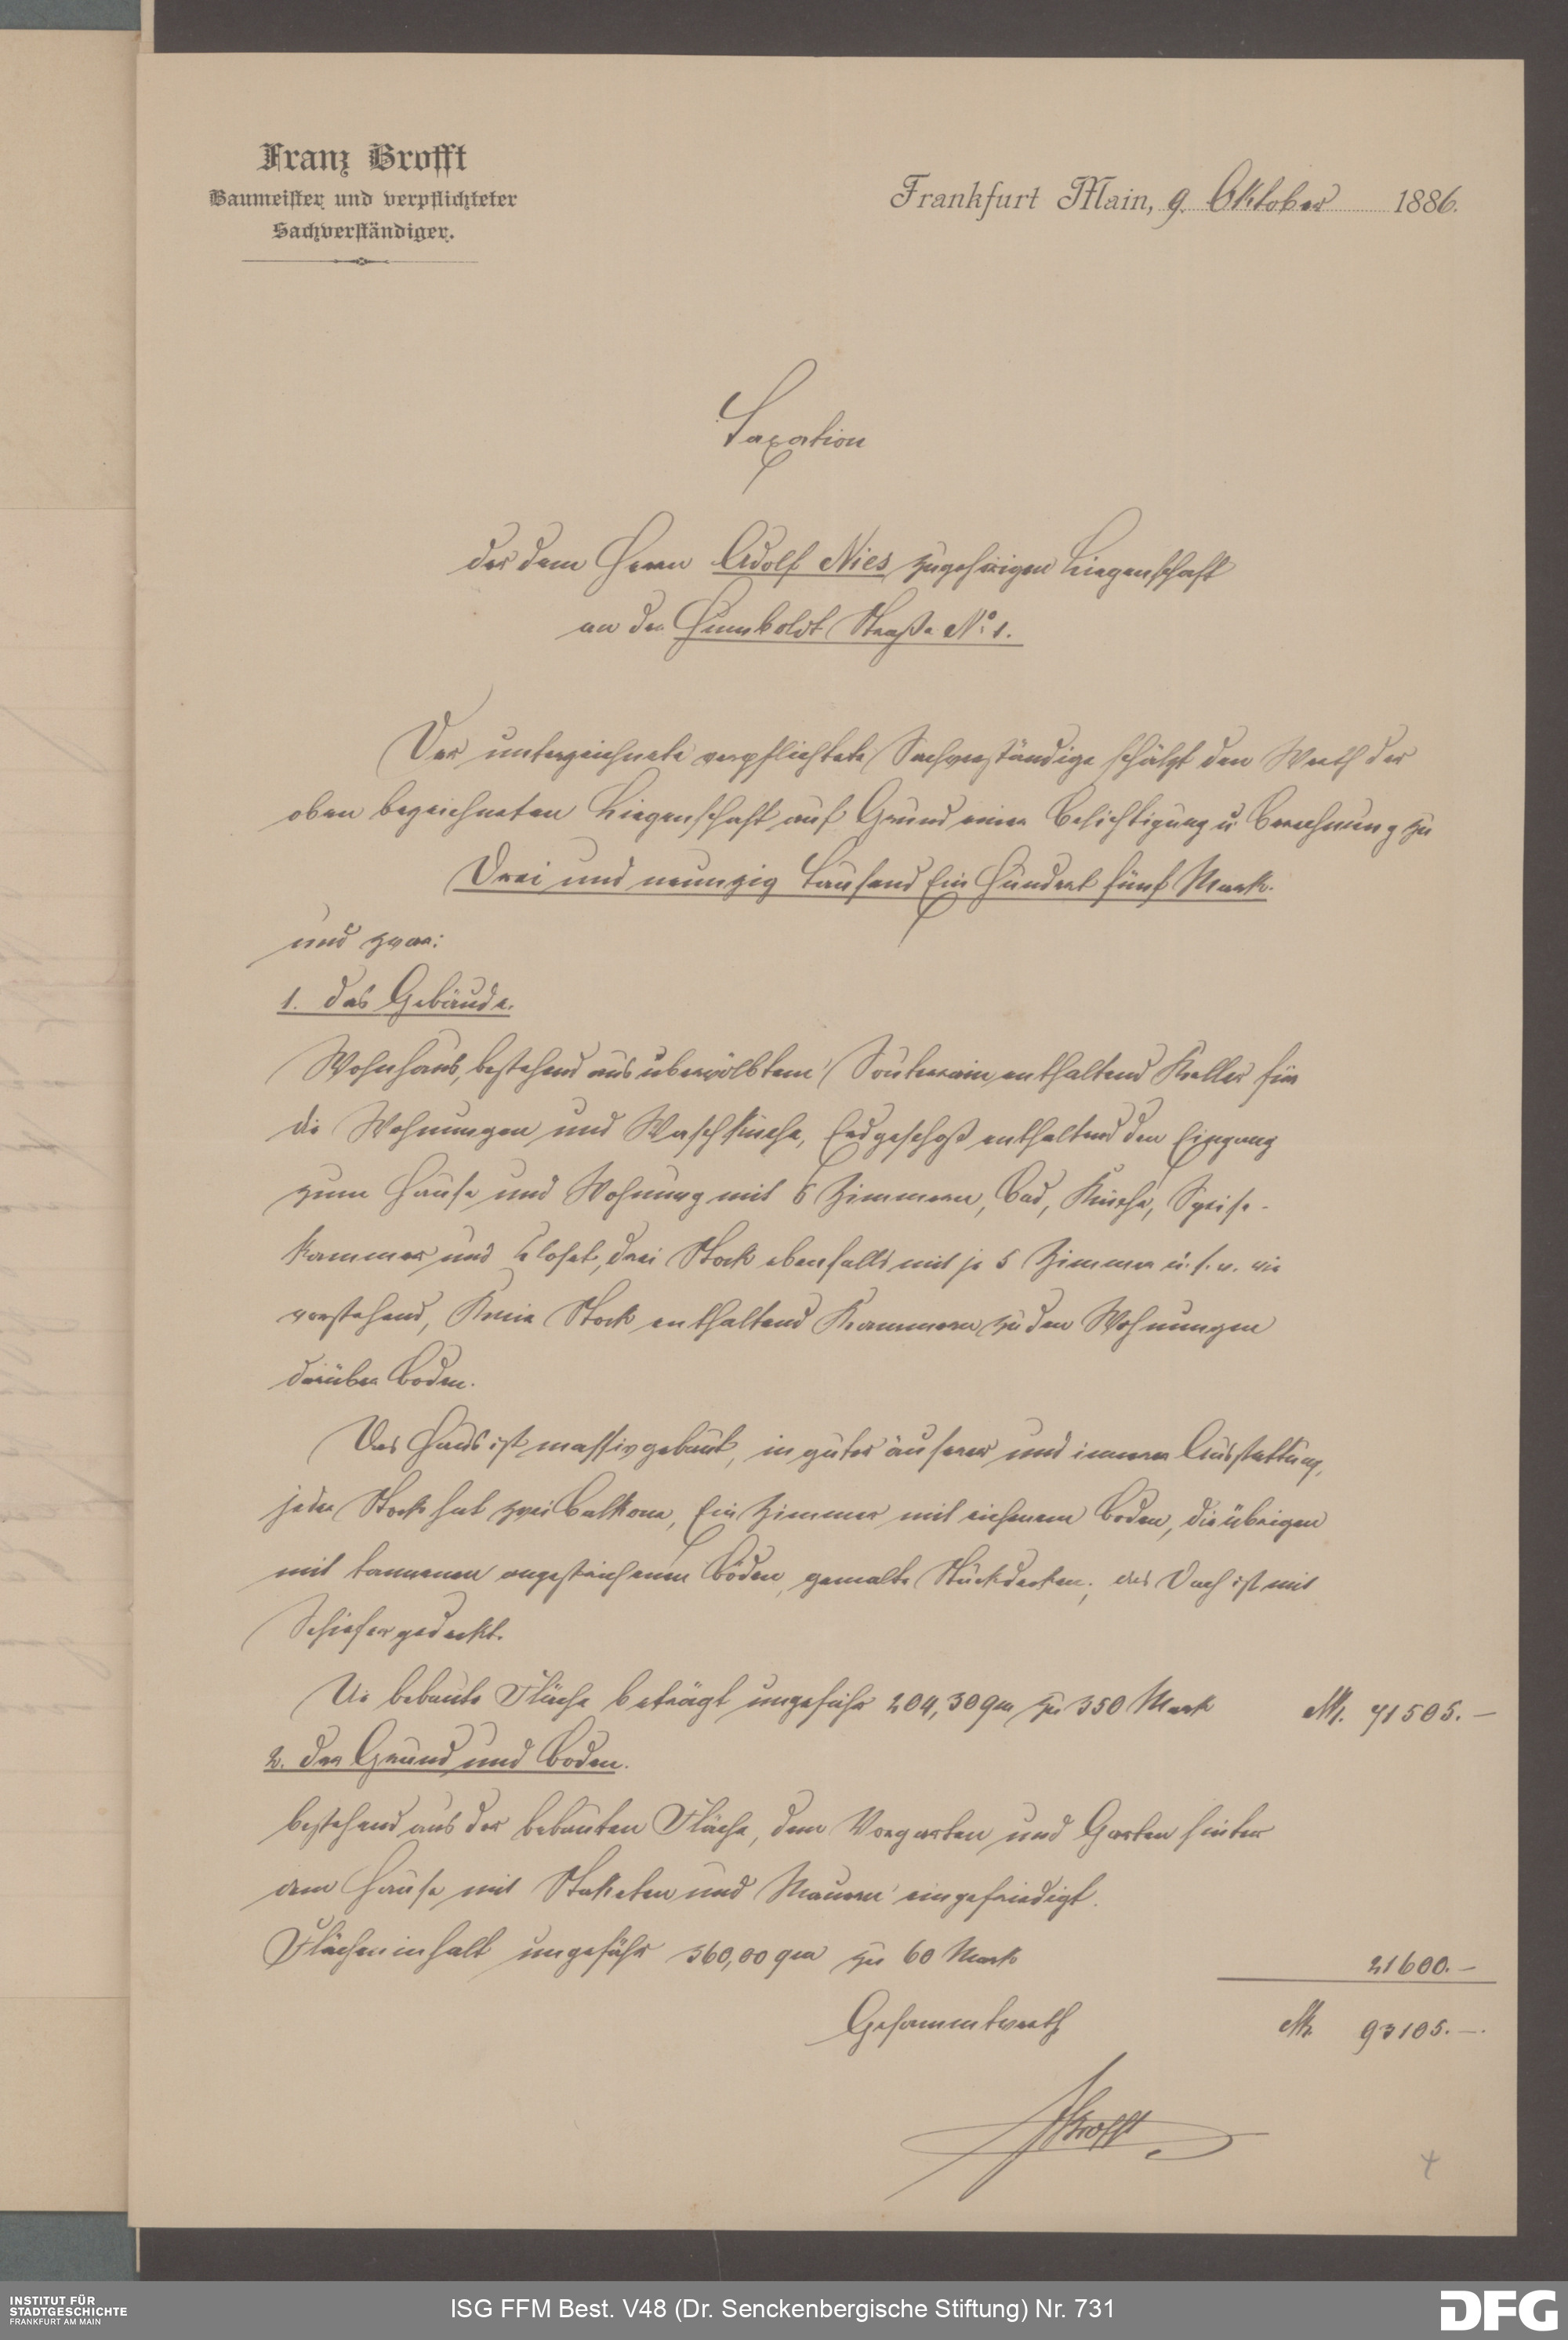 Franz Brofft
Baumeister und verpflichteter
Sachverständiger.
Frankfurt Main, 9. Oktober 1886.
Taxation
der dem Herrn Adolf Nies zugehörigen Liegenschaft
an der Humboldt Straße No. 1.
Der unterzeichnete verpflichtete Sachverständige schätzt den Werth der
oben bezeichneten Liegenschaft auf Grund einer Besichtigung u Berechnung zu
Drei und neunzig Tausend Ein Hundert fünf Mark.
und zwar:
1. das Gebäude.
Wohnhaus, bestehend aus überwölbtem Souterrain enthaltend Keller für
die Wohnungen und Waschküche, Erdgeschoß enthaltend den Eingang
zum Hause und Wohnung mit 5 Zimmern, Bad, Küche, Speise-
kammer und Closet, drei Stock ebenfalls mit je 5 Zimmer u. s. w. wie
vorstehend, Knie Stock enthaltend Kammern zu den Wohnungen
darüber Boden.
Das Haus ist massiv gebaut, in guter äuserer und innerer Ausstattung,
jeder Stock hat zwei Balkone, Ein Zimmer mit eichenem Boden, die übrigen
mit tannenen angestrichenen Böden, gemalte Stückdecken; das Dach ist mit
Schiefer gedeckt.
Die bebaute Fläche beträgt ungefähr 204,30 qm zu 350 Mark M. 71505.—
2. der Grund und Boden.
bestehend aus der bebauten Fläche, dem Vorgarten und Garten hinter
dem Hause mit Staketen und Mauern eingefriedigt.
Flächeninhalt ungefähr 360,00 qm zu 60 Mark 21600.—
Gesammtwerth M. 93105.—.
FBrofft
INSTITUT FÜR
STADTGESCHICHTE
FRANKFURT AM MAIN
ISG FFM Best. V48 (Dr. Senckenbergische Stiftung) Nr. 731
DFG